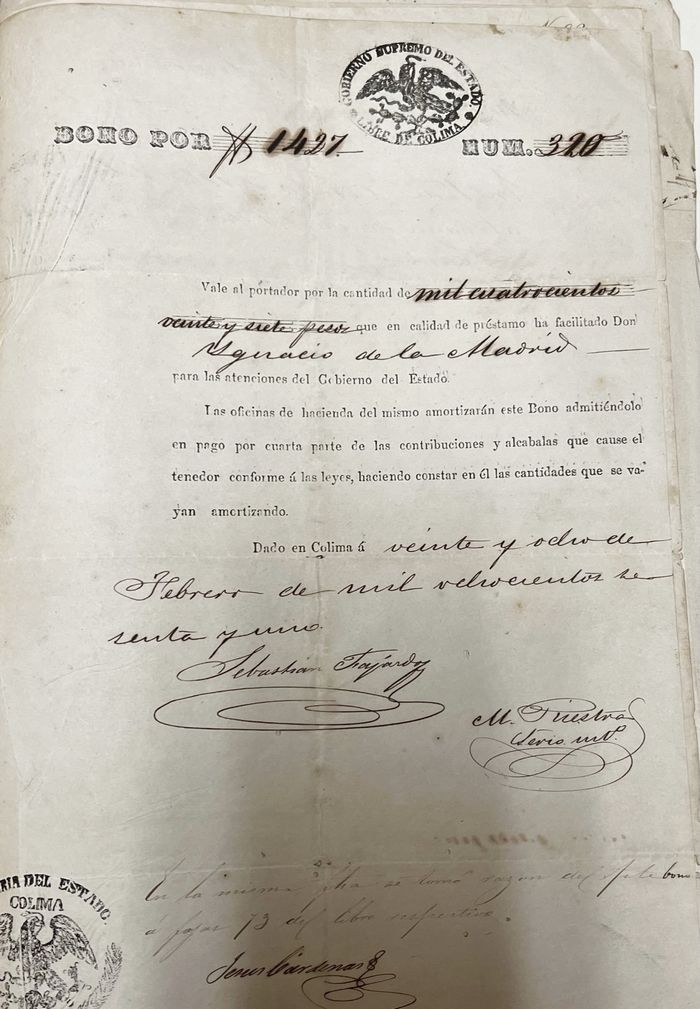 GOBIERNO SUPREMO DEL ESTADO
LIBRE DE COLIMA
BONO POR $ 1427. NUM. 320
Vale al portador por la cantidad de mil cuatrocientos
veinte y siete pesos que en calidad de préstamo ha facilitado Don
Ygnacio de la Madrid
para las atenciones del Gobierno del Estado.
Las oficinas de hacienda del mismo amortizarán este Bono admitiéndolo
en pago por cuarta parte de las contribuciones y alcabalas que cause el
tenedor conforme á las leyes, haciendo constar en él las cantidades que se va-
yan amortizando.
Dado en Colima á veinte y ocho de
Febrero de mil ochocientos se-
senta y uno.
Sebastian Fajardo
M.
En la misma fha se tomó razon del bono
á fojas 73 del libro respectivo.
RIA DEL ESTADO.
COLIMA
Jesus Cárdenas